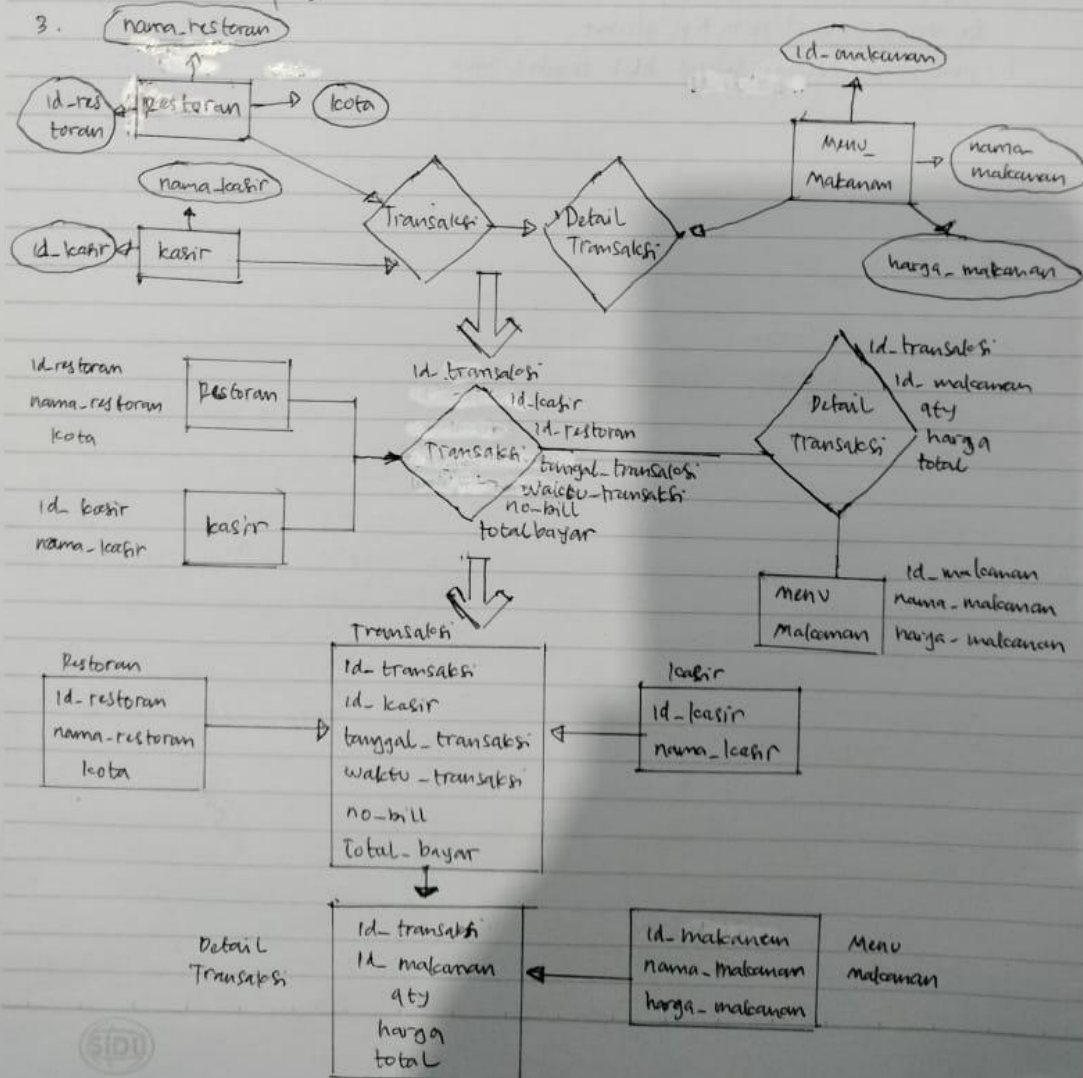 3.
nama_restoran
id_res
toran
Restoran
kota
nama_kasir
id_kasir
kasir
Transaksi
Detail
Transaksi
id_makanan
Menu_
Makanan
nama_
makanan
harga_makanan
id restoran
nama_restoran
kota
Restoran
id_kasir
nama_kasir
kasir
id_transaksi
id_kasir
id_restoran
Transaksi
tanggal_transaksi
waktu_transaksi
no_bill
total bayar
Detail
Transaksi
id_transaksi
id_makanan
qty
harga
total
Menu
Makanan
id_makanan
nama_makanan
harga_makanan
Restoran
id_restoran
nama_restoran
kota
Transaksi
id_transaksi
id_kasir
tanggal_transaksi
waktu_transaksi
no_bill
Total_bayar
kasir
id_kasir
nama_kasir
Detail
Transaksi
id_transaksi
id_makanan
qty
harga
total
id_makanan
nama_makanan
harga_makanan
Menu
makanan
SIDU